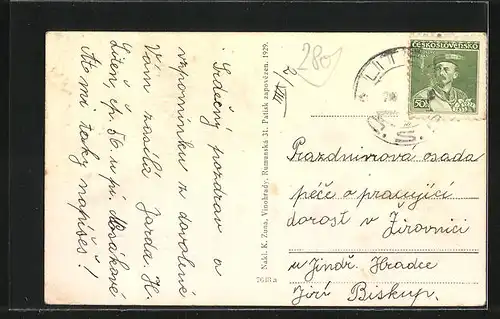 Srdečný pozdrav a
vzpomínku z dovolené
Vám zasílá Jarda H.
Liteň, čp. 56 u pí. Mosákové
Ať mi taky napíšeš!
Nakl. K. Zuna, Vinohrady, Rumunská 31. Patisk zapovězen. 1929.
280
2/VIII
ČESKOSLOVENSKO
50
Prazdninova osada
péče o pracující
dorost v Žirovnici
u Jindř. Hradce
Jiří Biskup.